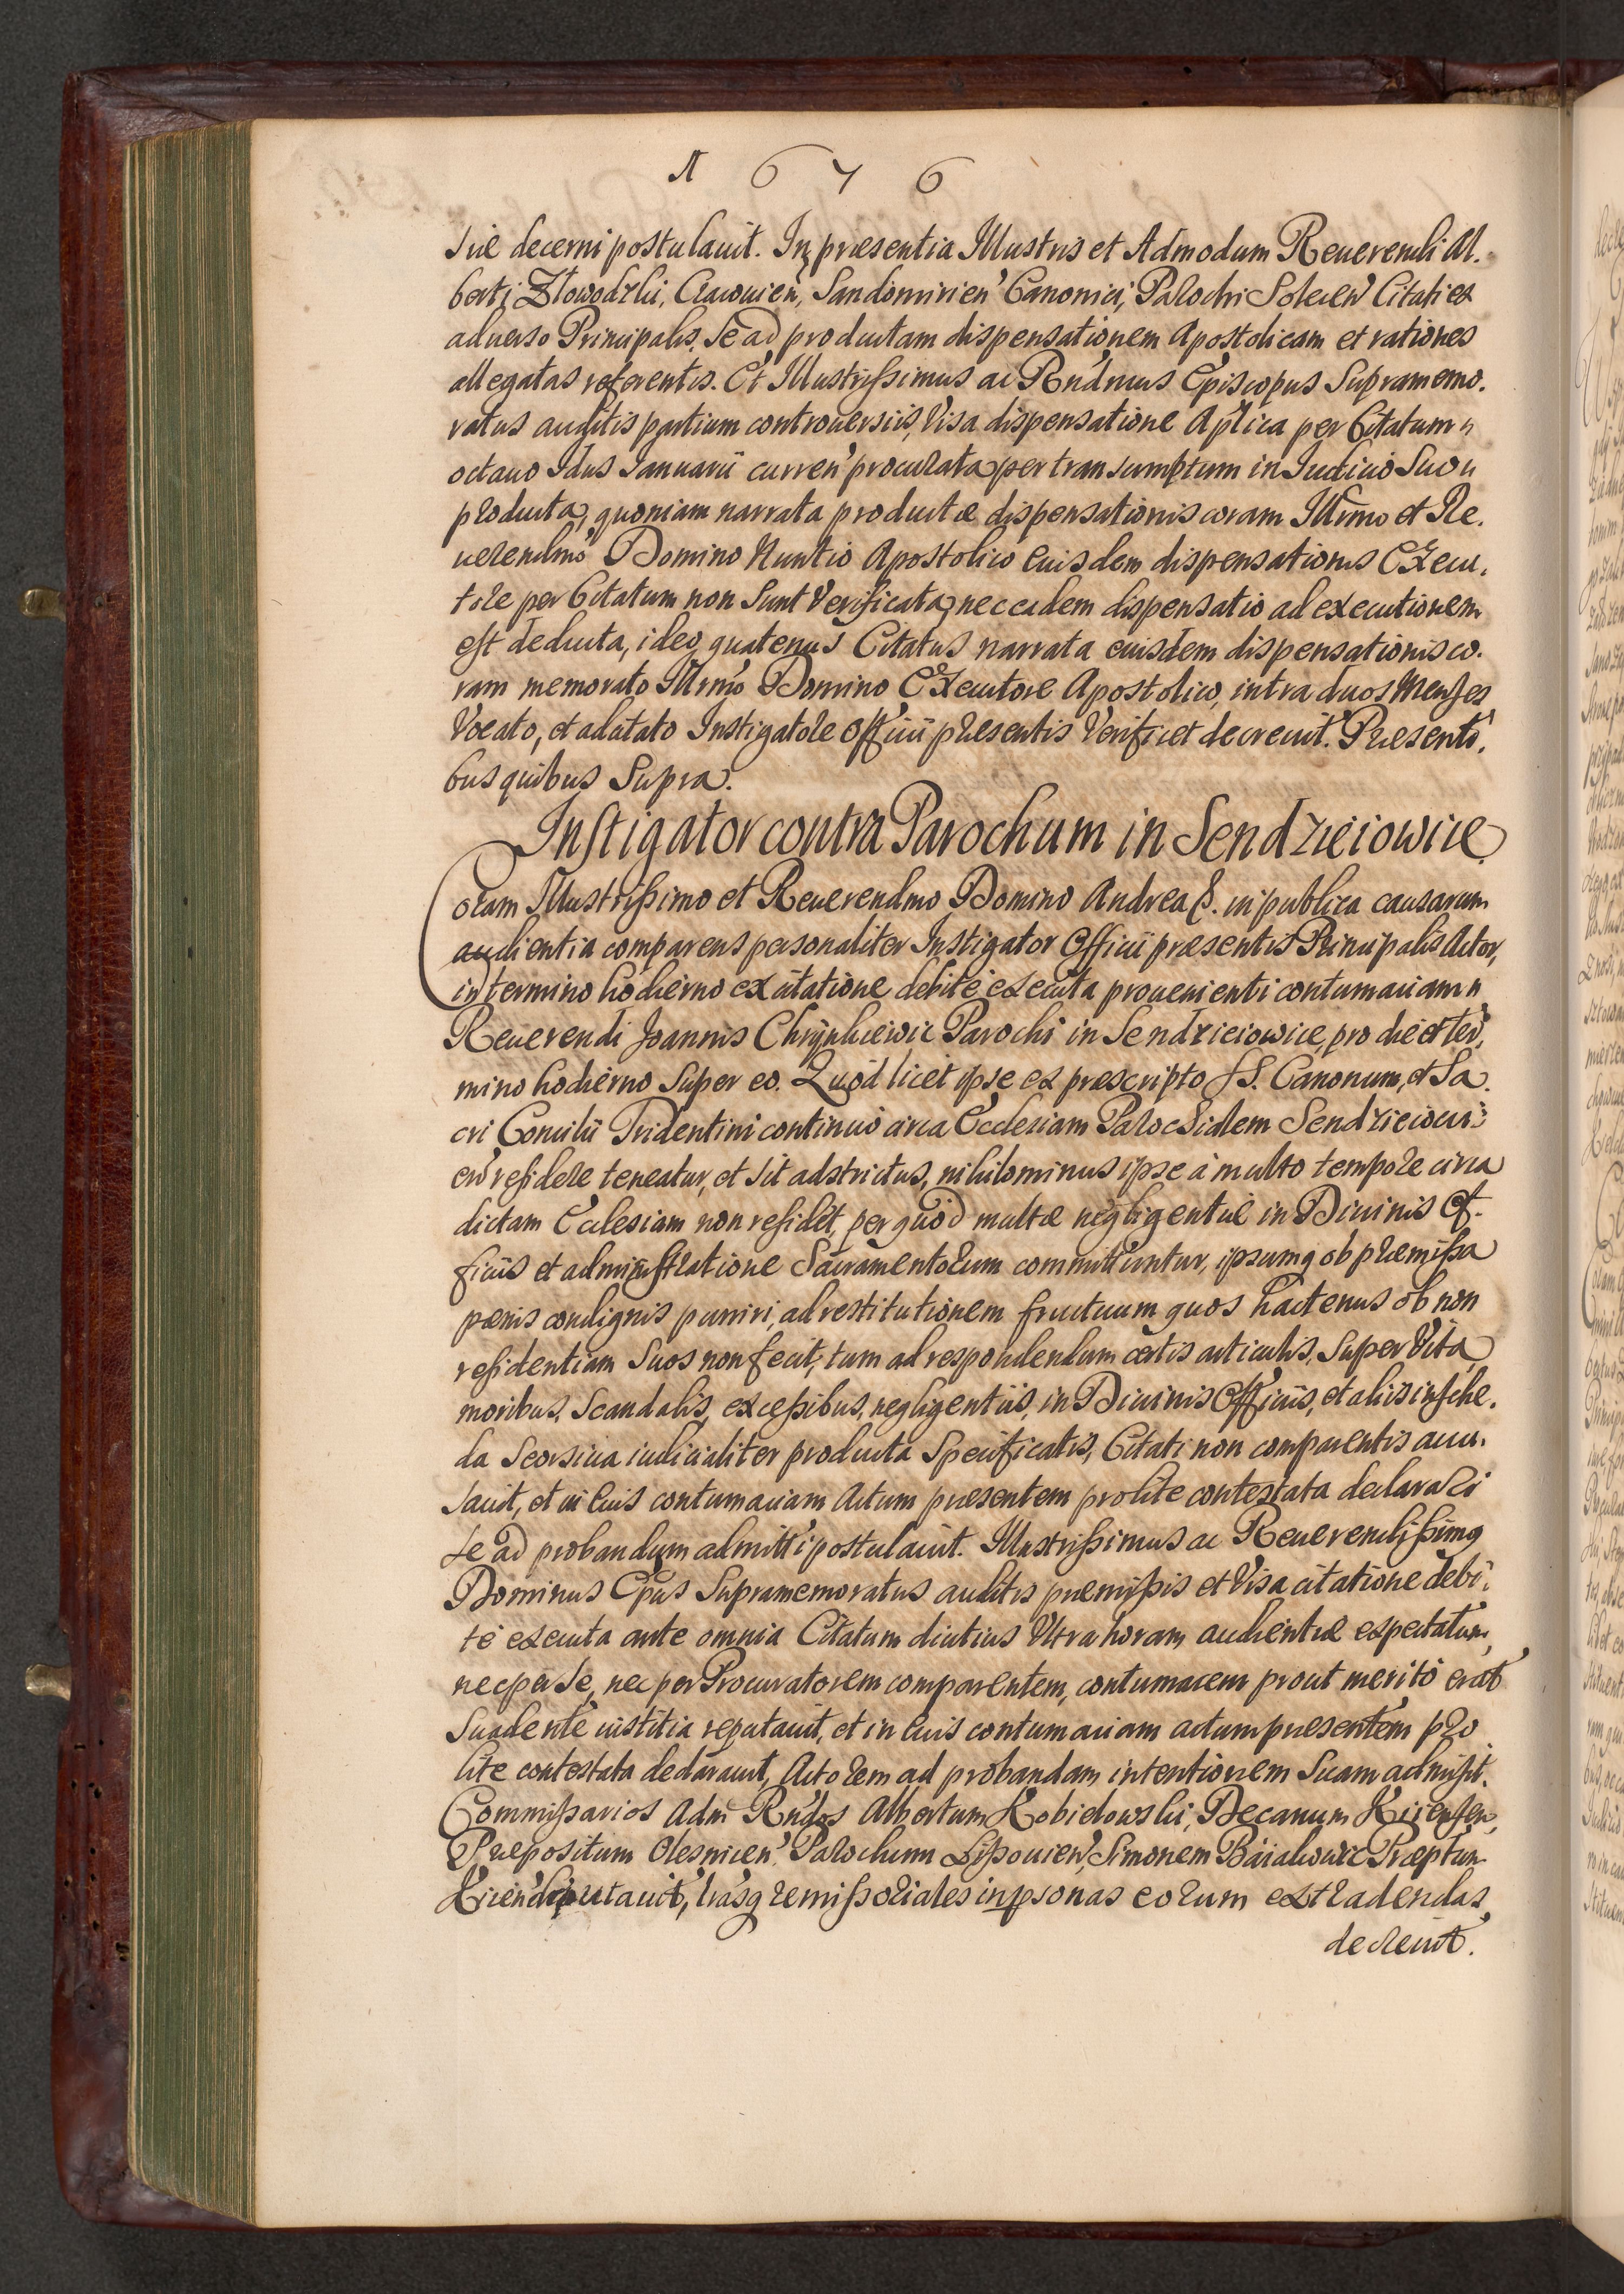 1 6 7 6
sue decerni postulauit. In praesentia Illustris et Admodum Reuerendi Al.
berti Złowodzki, Cracouien, Sandomirien' Canonici, Parochi Solecen' Citati ex
aduerso Principalis, se ad productam dispensationem Apostolicam et rationes
allegatas referentis. Et Illustrissimus ac Rndmus Episcopus Supramemo.
ratus auditis partium controuersiis, Visa dispensatione Aplica per Citatum
octauo Idus Ianuarii curren' procurata per transumptum in Iudicio Suo
producta, quoniam narrata productae dispensationis coram Illrmo et Re.
uerendmo Domino Nuntio Apostolico Euisdem dispensationis Execu.
tore per Citatum non Sunt Verificata, nec eadem dispensatio ad executionem
est deducta, ideo quatenus Citatus narrata euisdem dispensationis co.
ram memorato Illrmo Domino Executore Apostolico, intra duos Menses
Vocato, et adcitato Instigatore Officii presentis Verificet decreuit. Praesenti.
bus quibus Supra.
Instigator contra Parochum in Sendzieiowice
Coram Illustrissimo et Reuerendmo Domino Andrea &. in publica causarum
audientia comparens personaliter Instigator Officii praesentis Principalis Actor,
in termino hodierno ex citatione debite executa prouenienti contumaciam
Reuerendi Joannis Chrynkiewic Parochi in Sendzieiowice, pro die et ter.
mino hodierno Super eo. Quod licet ipse ex praescripto SS. Canonum, et Sa.
cri Concilii Tridentini continuo circa Ecclesiam Parochialem Sendzieioui.
en' residere teneatur, et sit adstrictus, nihilominus ipse à multo tempore circa
dictam Ecclesiam non residet, per quod multae negligentiae in Diuinis Of.
ficiis et administratione Sacramentorum committuntur, ipsumq ob praemissa
paenis condignis puniri, ad restitutionem fructuum quos hactenus ob non
residentiam Suos non fecit, tum ad respondendum certis articulis, Super Vita,
moribus, Scandalis, excessibus, negligentiis, in Diuinis Officiis, et aliis in sche.
da Seorsiua iudicialiter producta Specificatis, Citati non comparentis accu.
sauit, et in Euis contumaciam Actum praesentem pro lite contestata declarari
se ad probandum admitti postulauit. Illustrissimus ac Reuerendissimq
Dominus Epus Supramemoratus auditis praemissis et Visa citatione debi.
tè executa ante omnia Citatum diutius Ultra horam audientiae expectatum,
nec per se, nec per Procuratorem comparentem, contumacem prout meritò erat
Suadente iustitia reputauit, et in Euis contumaciam actum praesentem pro
lite contestata declarauit, Actorem ad probandam intentionem Suam admisit.
Commissarios Adm Rndos Albertum Kobielowski, Decanum Kiiensen,
Praepositum Olesnicen', Parochum Lissouien', Simonem Baiakowic Praeptum
Kiien' deputauit, lrasq remissoriales in psonas eorum extradendas
decreuit.